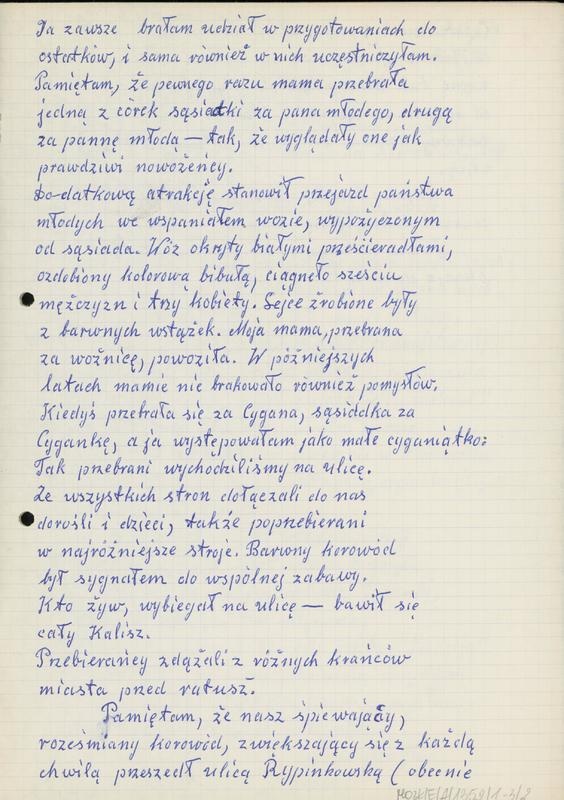 Ja zawsze brałam udział w przygotowaniach do
ostatków, i sama również w nich uczęstniczyłam.
Pamiętam, że pewnego razu mama przebrała
jedną z córek sąsiadki za pana młodego, drugą
za pannę młodą — tak, że wyglądały one jak
prawdziwi nowożeńcy.
Do-datkową atrakcję stanowił przejazd państwa
młodych we wspaniałem wozie, wypożyczonym
od sąsiada. Wóz okryty białymi prześcieradłami,
ozdobiony kolorową bibułą, ciągneło sześciu
mężczyzn i trzy kobiety. Lejce zrobione były
z barwnych wstążek. Moja mama, przebrana
za woźnicę, powoziła. W późniejszych
latach mamie nie brakowało również pomysłów.
Kiedyś przebrała się za Cygana, sąsiadka za
Cygankę, a ja występowałam jako małe cyganiątko.
Tak przebrani wychodziliśmy na ulicę.
Ze wszystkich stron dołączali do nas
dorośli i dzieci, także poprzebierani
w najróżniejsze stroje. Barwny korowód
był sygnałem do wspólnej zabawy.
Kto żyw, wybiegał na ulicę — bawił się
cały Kalisz.
Przebierańcy zdążali z różnych krańców
miasta przed ratusz.
Pamiętam, że nasz śpiewający,
roześmiany korowód, zwiększający się z każdą
chwilą przeszedł ulicą Rypinkowską (obecnie